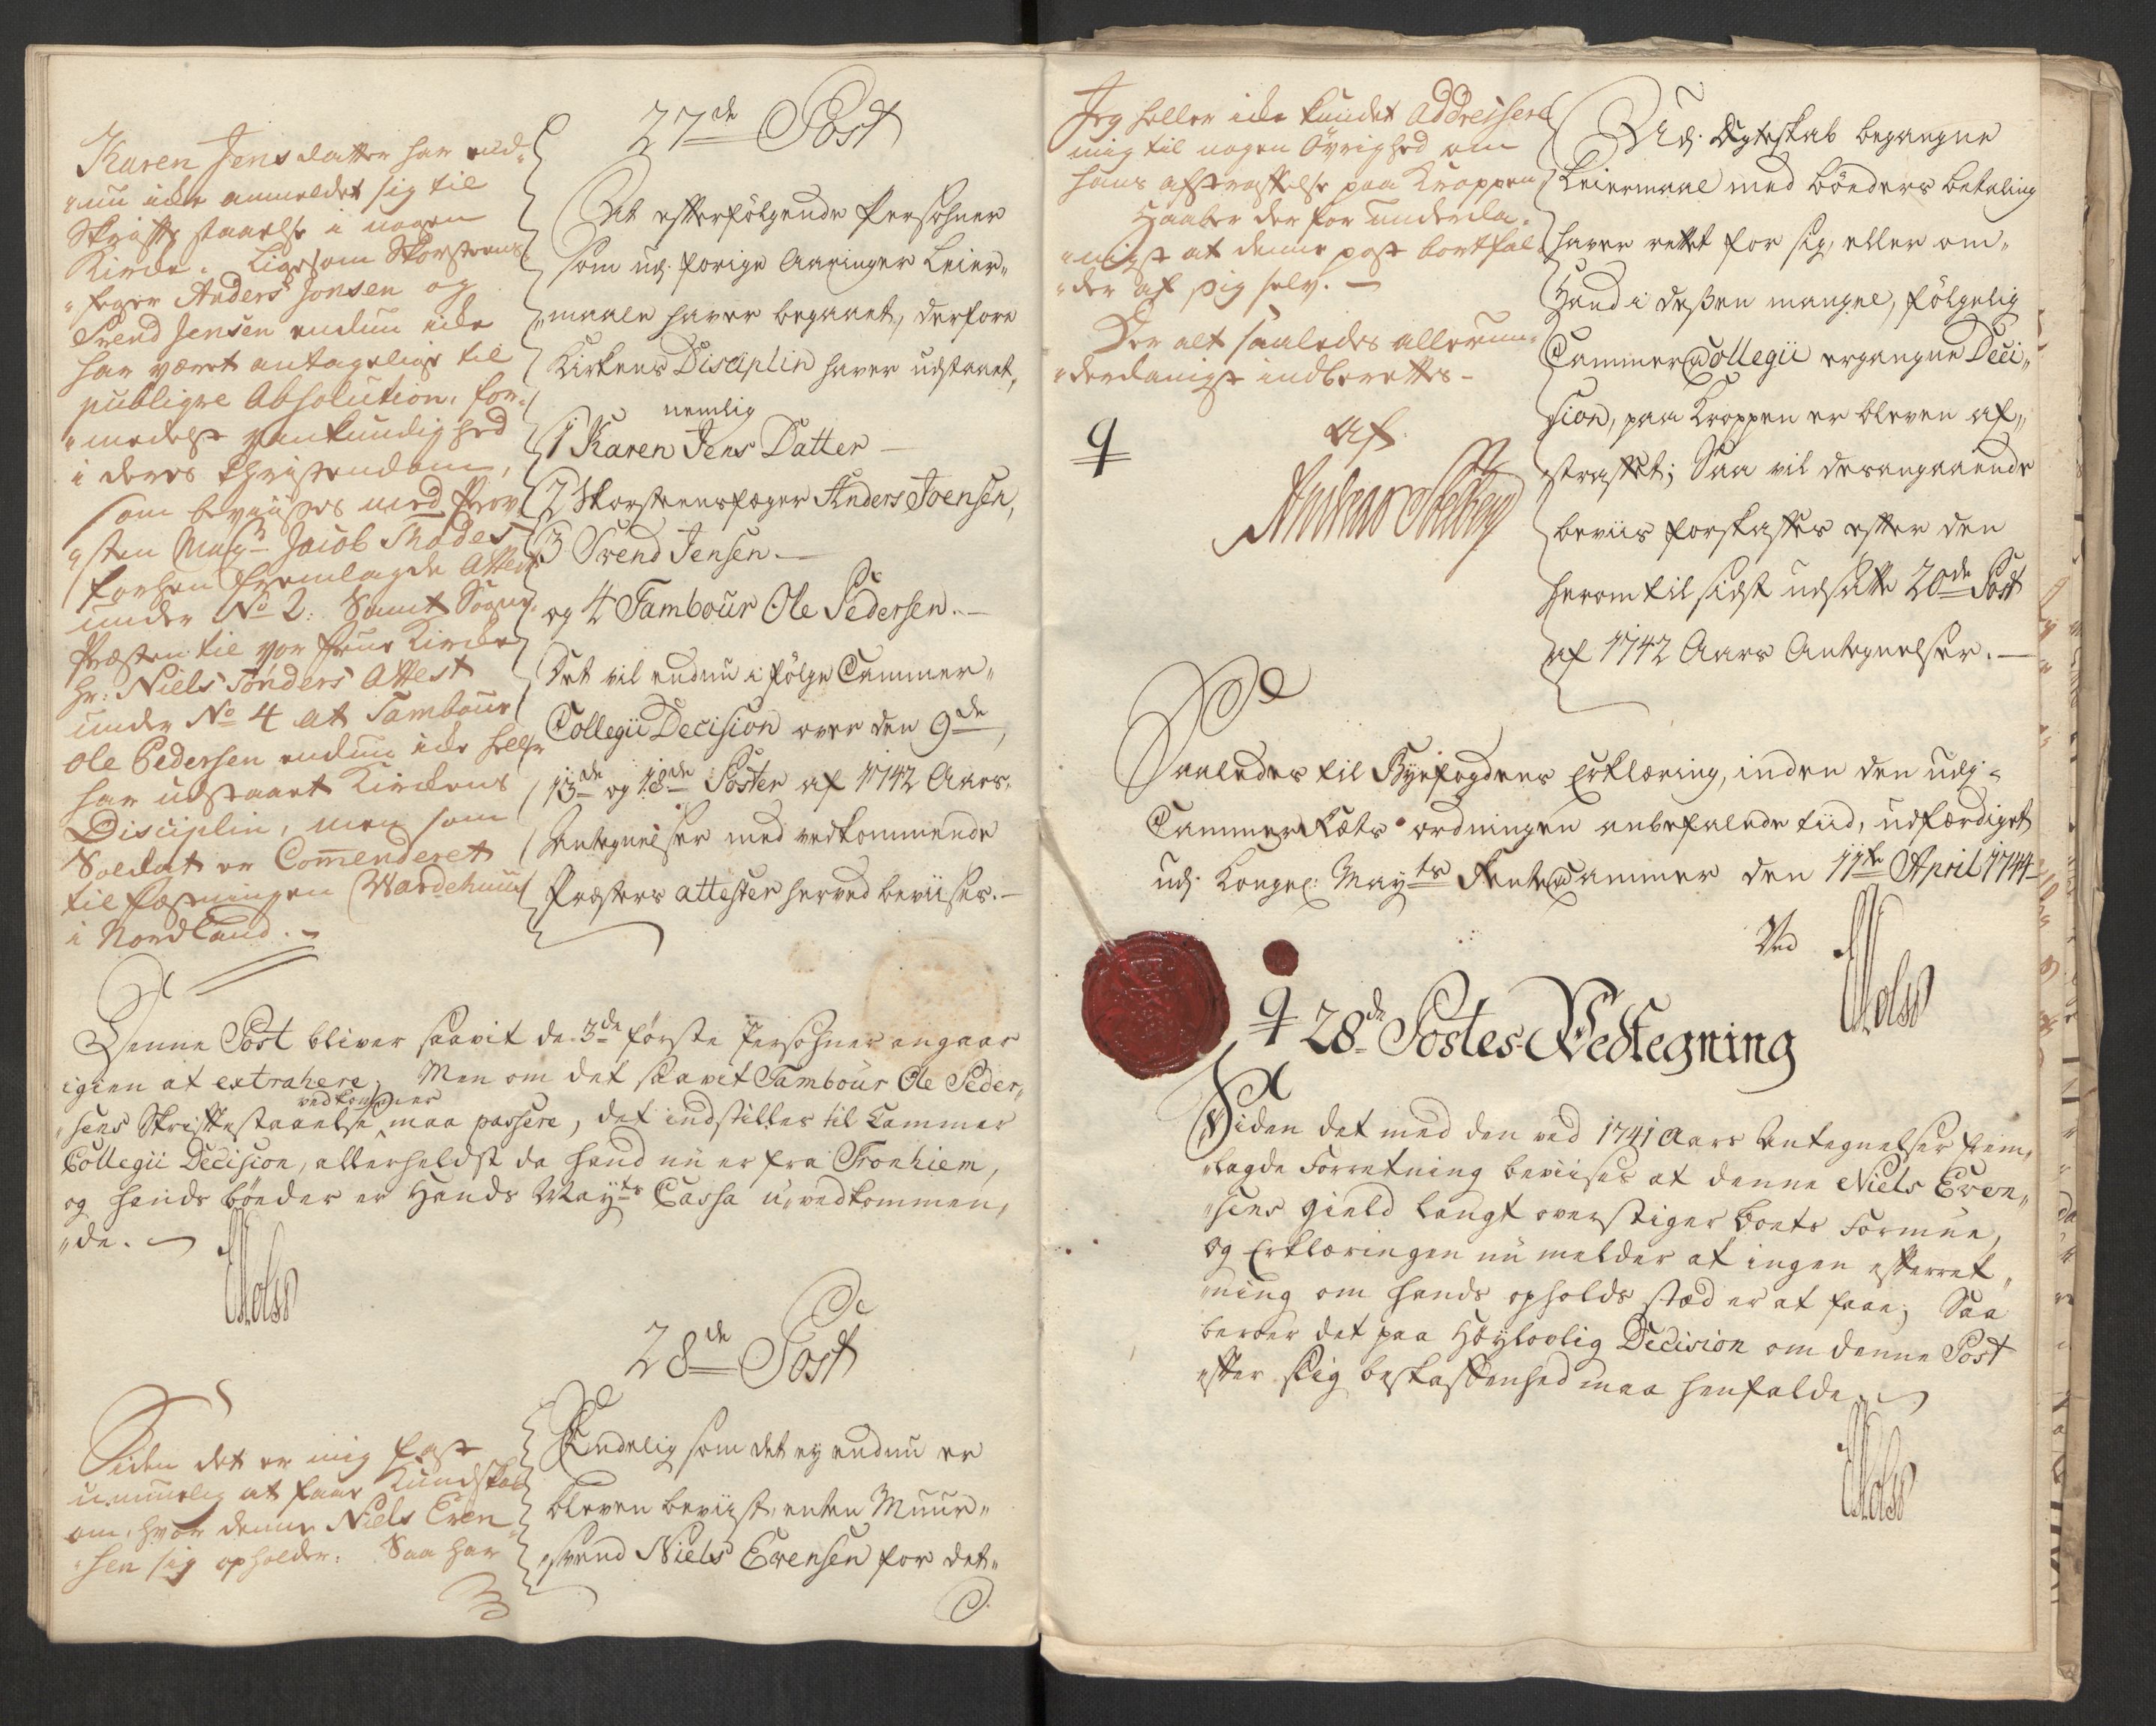 27de Post
Karen Jens datter har end-
"nu icke anmeldet sig til
Skrifte staaelse i nogen
Kircke. Ligesom Skorsteens-
"feger Anders Jonsen og
Svend Jensen endnu icke
har været antagelige til
publiqve Absolution, for-
"medelst vankundighed
i deres Christendom,
som beviises med Prov-
"sten Magr Jacob Thodes
forhen fremlagde Attest
under No 2: Samt Sogne-
Præsten til vor Frue Kircke
Hr: Niels Tönders Attest
under No 4 at Tambour
Ole Pedersen endnu icke heller
har udstaaet Kirckens
Disciplin, men som
Soldat er Commenderet
til Fæstningen Wardehuus
i Nordland. -
At efterfölgende Persohner
som udj forige Aaringer Leier-
"maale haver begaaet, derfore
Kirkens Disciplin haver udstaaet,
nemlig
1 Karen Jens Datter -
2 Skorsteensfæger Anders Joensen,
3 Svend Jensen. -
og 4 Tambour Ole Pedersen. -
Det vil endnu i fölge Cammer-
Collegii Decision over den 9de,
13de og 18de Poster af 1742 Aars
Antegnelser med vedkommende
Præsters attester herved beviises. -
Denne Post bliver saavit de 3de förste Persohner angaar
igien at extrahere, Men om det saavit Tambour Ole Peder-
"sens Skriftestaaelse vedkommer maa passere, det indstilles til Cammer
Collegii Decision, allerheldst da hand nu er fra Tronhiem,
og hands böeder er Hands Mayts Cassa u-vedkommen,
"de. -
28de Post
Siden det er mig fast
u-muelig at faae Kundskab
om, hvor denne Niels Even-
"sen sig opholder: Saa har
Endelig som det ey endnu er
bleven beviist, enten Muur-
"svend Niels Evensen for det-
Jeg heller icke kundet addressere
mig til nogen Övrighed om
hans afstraffelse paa Kroppen
Haaber derfor underda-
"nigst at denne post bortfal-
"der af sig selv. -
Der alt saaledes allerun-
"derdanigst indberettes -
af
Udj Ægteskab begangne
Leiermaal med böeders betaling
haver rettet for sig, eller om
Hand i deßen mangel, fölgelig
Cammer Collegii ergangne Deci-
sion, paa Kroppen er bleven af-
straffet; Saa vil desangaaende
beviis forskaffes efter den
herom til sidst udsatte 20de Post
af 1742 Aars Antegnelser. -
Saaledes til Byefogdens Erklæring, inden den udj
Cammer Rets ordningen anbefalede tiid, udfærdiget
udj Kongel: Mayts Rente Cammer den 11te April 1744
Ved
28de Postes Vedtegning
Siden det med den ved 1741 Aars Antegnelser frem-
"lagde Forretning beviises at denne Niels Even-
"sens gield langt overstiger boets Formue,
og Erklæringen nu melder at ingen efterret-
"ning om hands opholds stæd er at faae; Saa
beroer det paa Höylovlig Decision om denne Post
efter slig beskaffenhed maa henfalde. -